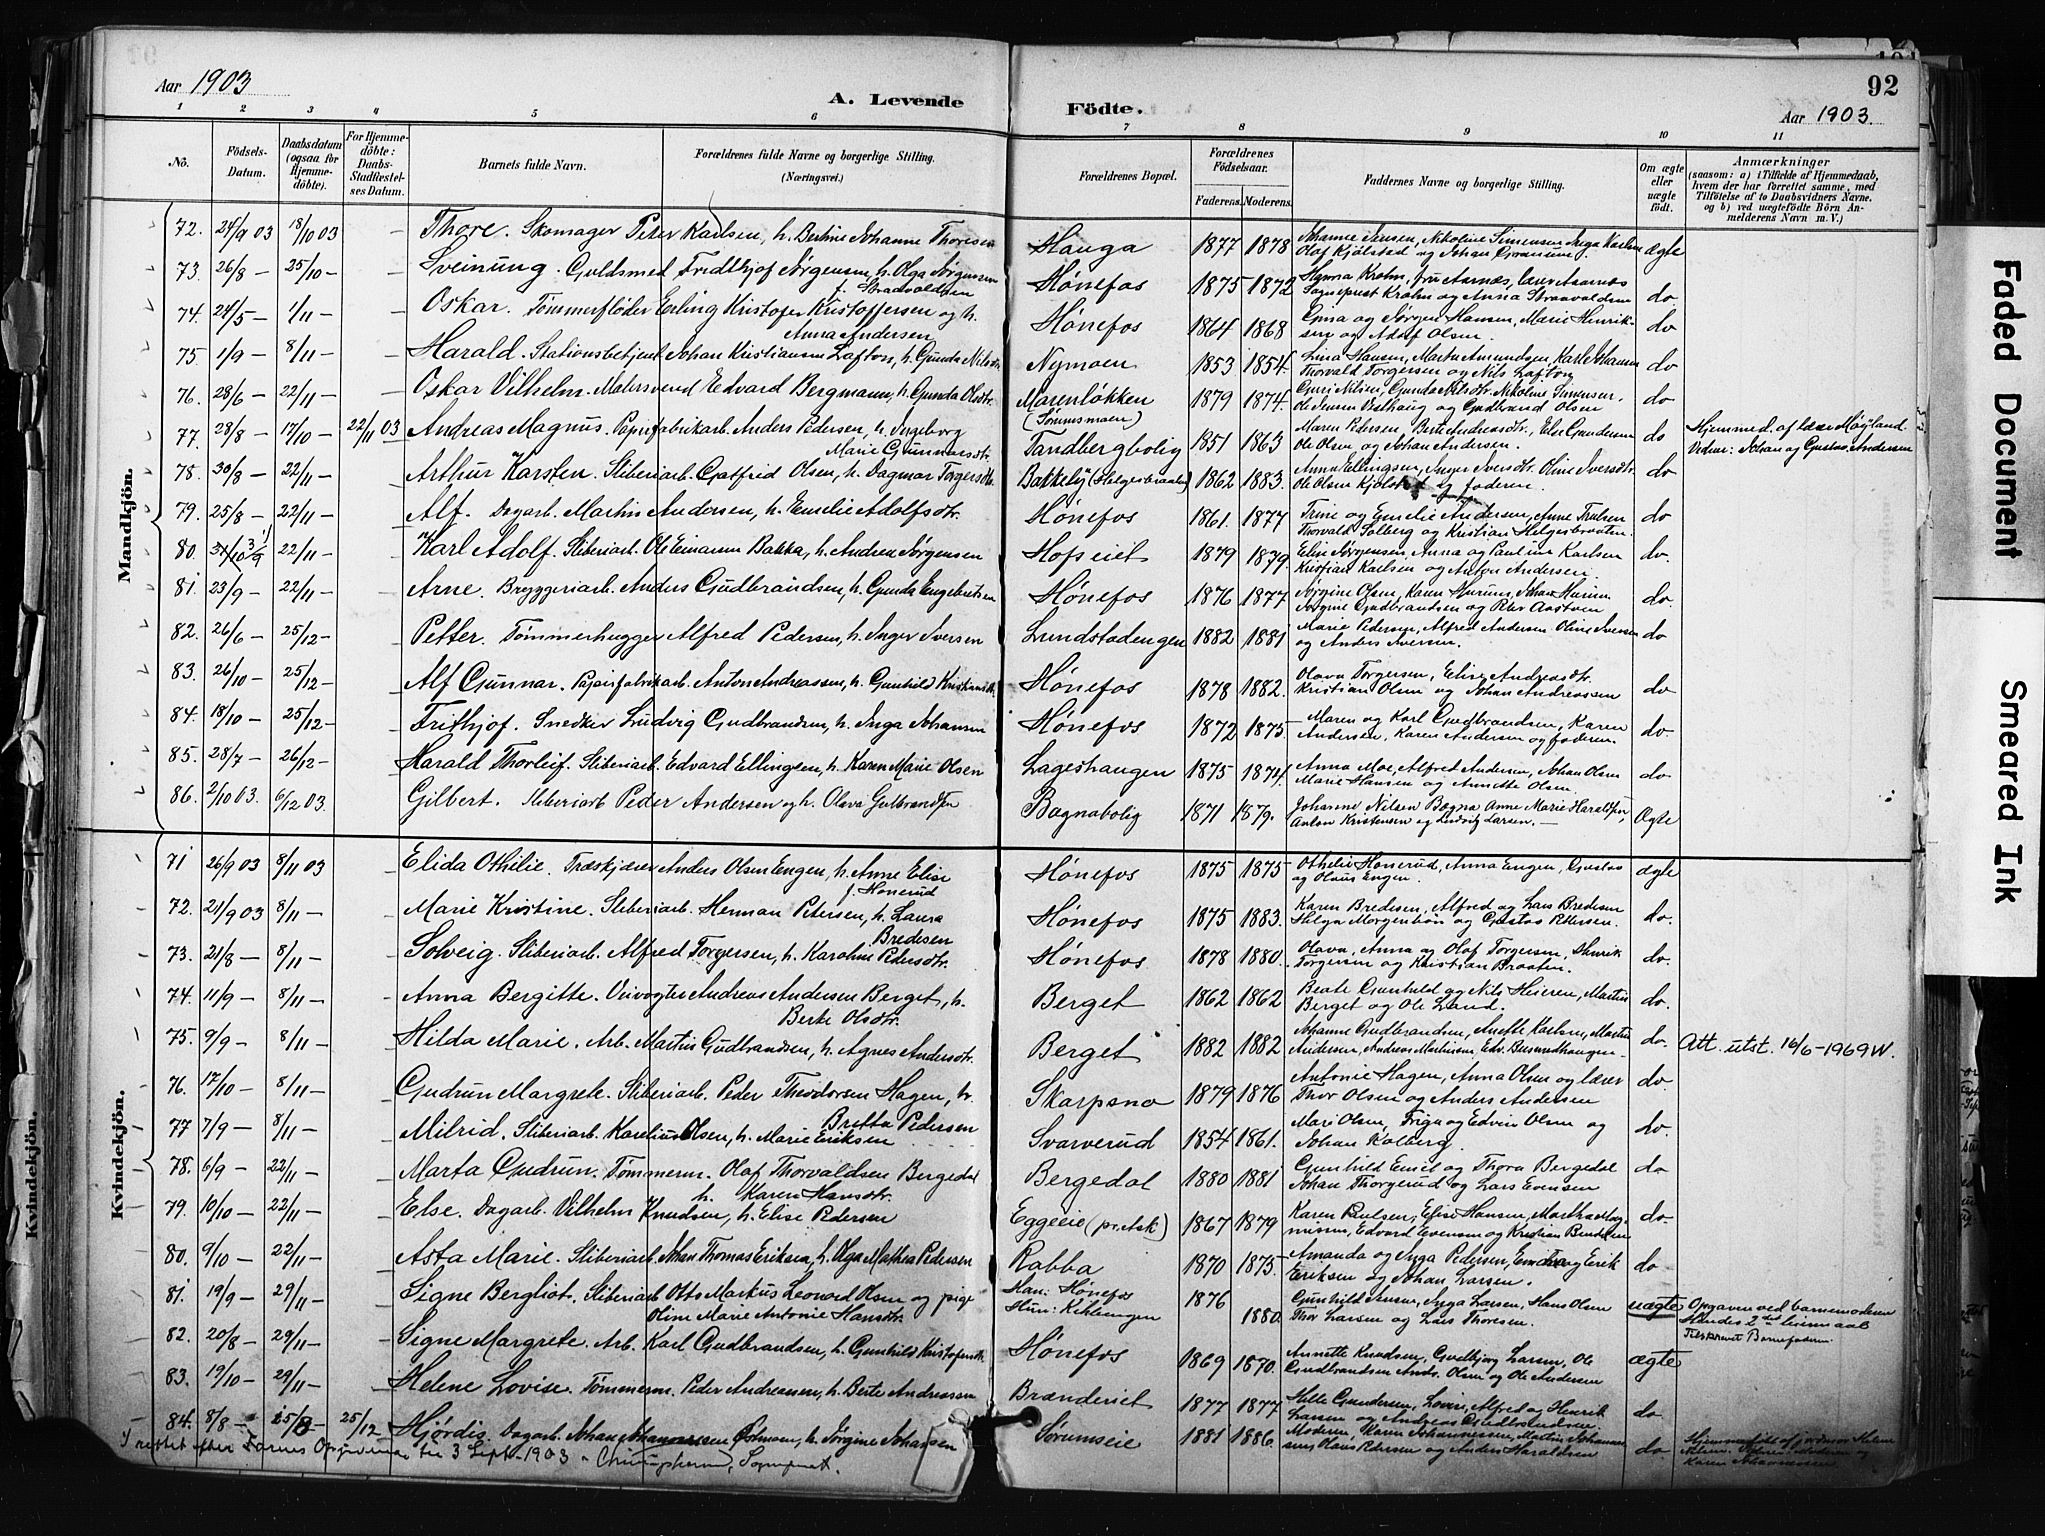 92
Aar 1903
A. Levende
Födte.
Aar 1903.
1 2 3 4 5 6 7 8 9 10 11
Nö. Födsels-Datum. Daabsdatum (ogsaa for Hjemme-döbte). For Hjemme-döbte: Daabs-Stadfæstel-ses Datum. Barnets fulde Navn. Forældrenes fulde Navne og borgerlige Stilling. (Næringsvei.) Forældrenes Bopæl. Forældrenes Födselsaar. Faderens. Moderens. Faddernes Navne og borgerlige Stilling. Om ægte eller uægte födt. Anmærkninger (saasom: a) i Tilfælde af Hjemmedaab, hvem der har forrettet samme, med Tilföielse af to Daabsvidners Navne, og b) ved uægtefödte Börn An-melderens Navn m. V.)
Mandkjön.
72. 24/9 03 18/10 03 – Thore. Skomager Peter Karlsen, h. Bertine Johanne Thoresen Hauga 1877 1878 Johanne Jensen, Nikoline Simensen, Inga Karlsen ægte
Olaf Kjölstad og Johan
73. 26/8 – 25/10 – – Sveinung. Guldsmed Fridthjof Jørgensen, h. Olga Jørgensen Hønefos 1875 1872 Krohn, fru Aarnæs, lærer Aarnæs do.
f. Strandvoldsen Sogneprest Krohn og Anna
74. 24/5 – 1/11 – – Oskar. Tømmerfløder Erling Kristofer Kristoffersen og h. Hønefos 1864 1868 Gina og Jørgen Hansen, Marie Henrik- do
Anna Andersen sen og Adolf Olsen.
75. 1/9 – 8/11 – – Harald. Stationsbetjent Johan Kristiansen Lafton, h. Gunda Nilsdtr. Nymoen 1853 1854. Lina Hansen, Marta Amundsen, Karl Johansen do
Thorvald Torgersen og Nils Lafton
76. 28/6 – 22/11 – – Oskar Vilhelm. Malersvend Edvard Bergmann, h. Gunda Olsdtr. Marenløkken 1879 1874. Guri Nilsen, Gunda Nilsdtr. Nikoline Simensen, do
(Sømmsmoen) Ole Jensen og Gudbrand Olsen
77. 28/8 – 17/10 – 22/11 03 Andreas Magnus. Papirfabrikarb. Anders Pedersen, h. Ingeborg Tandbergbolig 1851 1863 Maren Pedersen, Berte Andreasdtr., Eler Gundersen do Hjemmed. af lærer Møgland
Marie Gunnarsdtr. Ole Olsen og Johan Andersen. Vidner: Johan og Gustav Andersen
78. 30/8 – 22/11 – Arthur Karsten. Sliberiarb. Gotfred Olsen, h. Dagmar Torgersdtr. Bakkely (Helgesbraaten) 1862 1883. Anna Ellingsen, Inger Iversdtr. Oline Iversdtr. do
Ole Olsen og faderen.
79. 25/8 – 22/11 – – Alf. Dagarb. Martin Andersen, h. Emilie Adolfsdtr. Hønefos 1861. 1877 Trine og Emelie Andersen, Anne Trulsen do
Thorvald Solberg og Kristian Helgesbraaten.
80. 22/11 – – Karl Adolf. Sliberiarb. Ole Einarsen Bakka, h. Andrea Jørgensen Hofseiet 1879 1879. Elise Jørgensen, Anna og Pauline Karlsen do.
Kristian Karlsen og Anton Andersen.
81. 23/9 – 22/11 – – Arne. Bryggeriarb. Anders Gudbrandsen, h. Gunda Engebretsen Hønefos 1876 1877 Jørgine Olsen, Karen Hurum, Johan Hurum do.
Jørgine Gudbrandsen og Peter Aastoen
82. 26/6 – 25/12 – – Petter. Tømmerhugger Alfred Pedersen, h. Inger Iversen Lundstadengen 1882 1881 Marie Pedersen, Alfred Andersen, Oline Iversen do
og Anders Iversen.
83. 26/10 – 25/12 – – Alf Gunnar. Papirfabrikarb. Anton Andreassen, h. Gunhild Kristiansdtr. Hønefos 1878 1882. Olava Torgersen, Elise Andreasdtr. do
Kristian Olsen og Johan Andreassen
84. 18/10 – 25/12 – – Frithjof. Snedker Ludvig Gudbrandsen, h. Inga Johansen Hønefos 1872 1875 Maren og Karl Gudbrandsen, Karen do.
Andersen, Karen Andersen og faderen.
85. 28/7 – 26/12 – – Harald Thorleif. Sliberiarb. Edvard Ellingsen, h. Karen Marie Olsen Lageshaugen 1875 1874. Anna Moe, Alfred Andersen, Johan Olsen do
Marie Hansen og Annette Olsen.
86. 2/10 03. 6/12 03 – Gilbert. Sliberiarb Peder Andersen og h. Olava Gulbrandsen Bagnabolig 1871 1879. Johanne Nilsen Bagna, Anne Marie Haraldsen, Ægte
Anton Kristensen og Ludvig Larsen. –
Kvindekjön.
Kvindekjön.
71 26/9 03 8/11 03 – Elida Othilie. Træskjærer Anders Olsen Engen, h. Anne Elise Hønefos 1875 1875 Othelie Honerud, Anna Engen, Gustav ægte
f. Honerud og Olaus Engen.
72. 21/9 03 8/11 – – Marie Kristine. Sliberiarb. Herman Petersen, h. Laura Hønefos 1875 1883. Karen Bredesen, Alfred og Lars Bredesen do.
Bredesen Helga og Gustav Pettersen.
73. 21/8 – 8/11 – – Solveig. Sliberiarb. Alfred Torgersen, h. Karoline Pedersdtr. Hønefos 1878 1880. Olava, Anna og Olaf Torgersen, Henrik do.
Torgersen og Kristian Braaten.
74. 11/9 – 8/11 – – Anna Bergitte. Veivogter Andreas Andersen Berget, h. Berget 1862 1862 Beate Gunhild og Nils Heieren, Martin do.
Berte Olsdtr. Berget og Ole Land.
75. 9/9 – 8/11 – – Hilda Marie. Arb. Martius Gudbrandsen, h. Agnes Andersdtr. Berget 1882 1882 Johanne Gudbrandsen, Anette Karlsen, Martin do. Att. utst. 16/6-1969 W.
Andersen, Andreas Martinsen, Edv. Busundhaugen.
76. 17/10 – 8/11 – Gudrun Margrete. Sliberiarb. Peder Theodorsen Hagen, h. Skarpsno 1879 1876 Antonie Hagen, Anna Olsen og lærer do.
Bretta Pedersen Thor Olsen og Anders Andersen
77 7/9 – 8/11 – – Milrid. Sliberiarb. Karelius Olsen, h. Marie Eriksen Svarverud 1854 1861. Mari Olsen, Frigu og Edvin Olsen og do.
Johan Kolberg.
78. 6/9 – 22/11 – – Marta Gudrun. Tømmerm. Olaf Thorvaldsen Bergedal Bergedal 1880 1881 Gunhild Emil og Thora Bergedal do
h. Karen Hansdtr. Johan Thorgerud og Lars Evensen
79. 10/10 – 22/11 – – Else. Dagarb. Vilhelm Knudsen, h. Elise Pedersen Eggeeie (pr. Ask) 1867 1879 Karen Paulsen, Elise Hansen, Martha Mag- do.
nussen, Edvard Evensen og Kristian Bendiksen
80. 9/10 – 22/11 – – Asta Marie. Sliberiarb. Johan Thomas Eriksen, h. Olga Mathea Pedersen Rabba 1870 1875 Amanda og Inga Pedersen, og Erik do
Eriksen og Johan Larsen.
81. 19/9 – 29/11 – – Signe Bergliot. Sliberiarb Otto Markus Leonard Olsen og pige Han: Hønefos 1876 Gunhild Larsen, Inga Larsen, Hans Olsen uægte Opgaven ved barnemoderen
Oline Marie Antonie Hansdtr. Hun: 1880. Thor Larsen og Lars Thoresen. Hendes 2det leiermaal
Tilskrevet Barnefaderen
82. 20/8 – 29/11 – – Signe Margrete. Arb. Karl Gudbrandsen, h. Gunhild Kristofersdtr. Hønefos 1869 1870. Annette Knudsen, Gudbjørg Larsen, Ole ægte
Gudbrandsen Ands. Olsen og Ole Andersen
83. 19/10 – 29/11 – – Helene Lovise. Tømmerm. Peder Andreassen, h. Berte Andreassen Brænderiet 1877 1877 Helle Gundersen, Lovise, Alfred og Henrik do
Larsen og Andreas Gudbrandsen
84. 8/8 – 25/12 Hjørdis. Dagarb. Johan Johannessen Østmoen, h. Jørgine Johansen Sørumseie 1881 1886. Moderen, Karen Johannessen, Martin Johannes- do.
sen, Hans Pedersen og Anders Haraldsen
Karen Johannessen
3 Sept. 1903
Faded Document
Smeared Ink